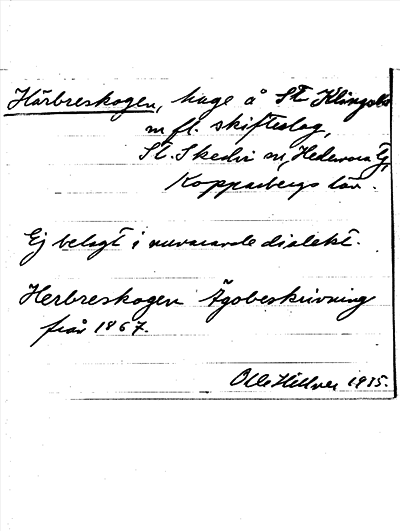 Härbreskogen, hage å St Klingsbo
m fl. skifteslag,
St. Skedvi sn, Hedemora tg,
Kopparbergs län.
Ej belagt i nuvarande dialekt.
Herbreskogen Ägobeskrivning
från 1867.
Olle Hillver 1935.